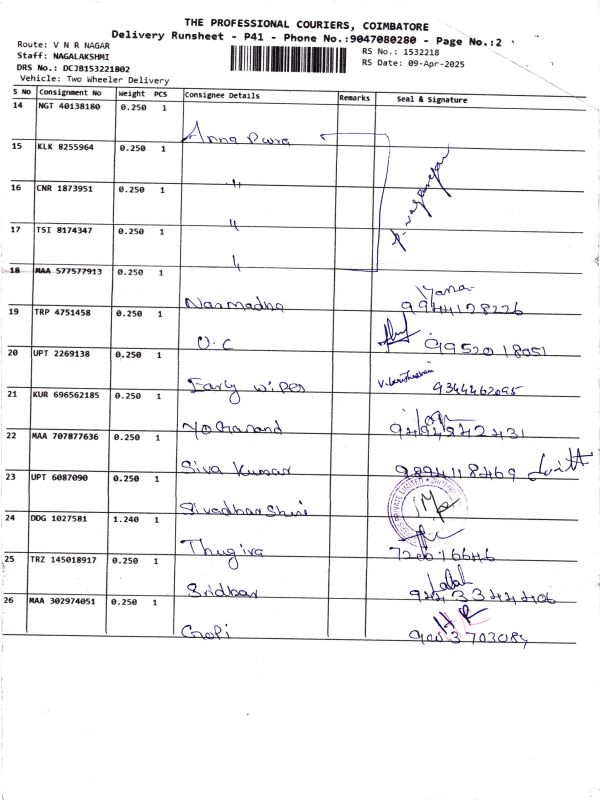 THE PROFESSIONAL COURIERS, COIMBATORE
Delivery Runsheet - P41 - Phone No.:9047080280 - Page No.:2
Route: V N R NAGAR
Staff: NAGALAKSHMI
DRS No.: DCJB153221802
Vehicle: Two Wheeler Delivery
RS No.: 1532218
RS Date: 09-Apr-2025
S No Consignment No Weight PCS Consignee Details Remarks Seal & Signature
14 NGT 40138180 0.250 1
15 KLK 8255964 0.250 1
"
16 CNR 1873951 0.250 1
"
17 TSI 8174347 0.250 1
"
18 MAA 577577913 0.250 1
Narmadha 9944128226
19 TRP 4751458 0.250 1
O.C 9952018051
20 UPT 2269138 0.250 1
Early wipes 9344462095
21 KUR 696562185 0.250 1
Yoganand
22 MAA 707877636 0.250 1
Siva Kumar 9894118469
23 UPT 6087090 0.250 1
Sivadharshini
PRIVATE LIMITED
24 DDG 1027581 1.240 1
Thugira
25 TRZ 145018917 0.250 1
Sridhar
26 MAA 302974051 0.250 1
Gopi
HR